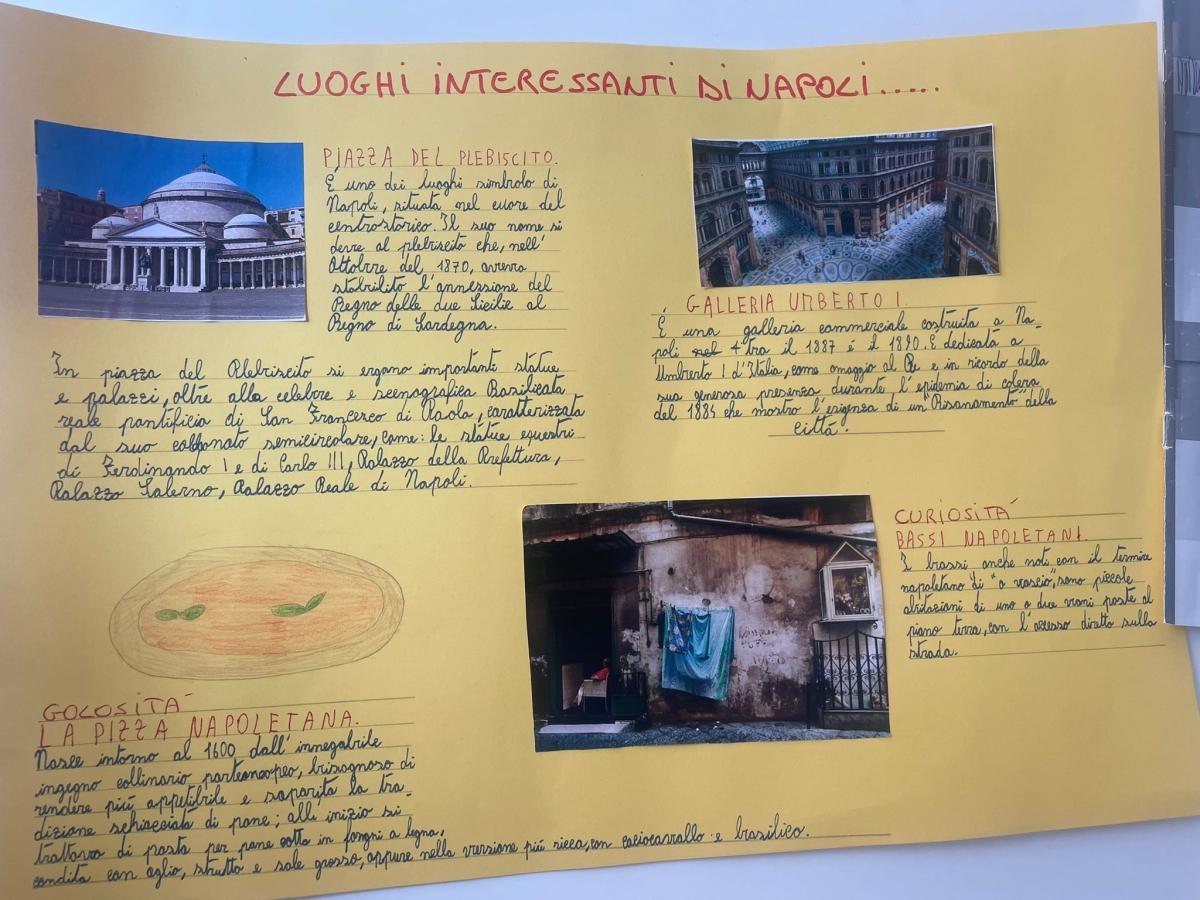 LUOGHI INTERESSANTI DI NAPOLI.....
PIAZZA DEL PLEBISCITO.
É uno dei luoghi simbolo di
Napoli, situata nel cuore del
centrostorico. Il suo nome si
deve al plebiscito che, nell'
Ottobre del 1870, aveva
stabilito l'annessione del
Regno delle due Sicilie al
Regno di Sardegna.
In piazza del Plebiscito si ergono importanti statue
e palazzi, oltre alla celebre e scenografica Basilicata
reale pontificia di San Francesco di Paola, caratterizzata
dal suo colonnato semicircolare, come: le statue equestri
di Ferdinando I e di Carlo III, Palazzo della Prefettura,
Palazzo Salerno, Palazzo Reale di Napoli.
GALLERIA UMBERTO I.
É una galleria commerciale costruita a Na-
poli nel tra il 1887 é il 1890. É dedicata a
Umberto I d'Italia, come omaggio al Re e in ricordo della
sua generosa presenza durante l'epidemia di colera
del 1884 che mostro l'esigenza di un "Risanamento" della
città.
CURIOSITÁ
BASSI NAPOLETANI.
I bassi anche noti con il termine
napoletano di "o vascio", sono piccole
abitazioni di uno o due vani poste al
piano terra, con l'accesso diratto sulla
strada.
GOLOSITÁ
LA PIZZA NAPOLETANA.
Nasce intorno al 1600 dall'innegabile
ingegno collinario partenopeo, bisognoso di
rendere più appetibile e saparita la tra-
dizione schiacciata di pane; alli inizio si
trattava di pasta per pane cotta in forgni a legna,
condita con aglio, strutto e sale grosso, oppure nella versione più ricca, con caciocavallo e basilico.